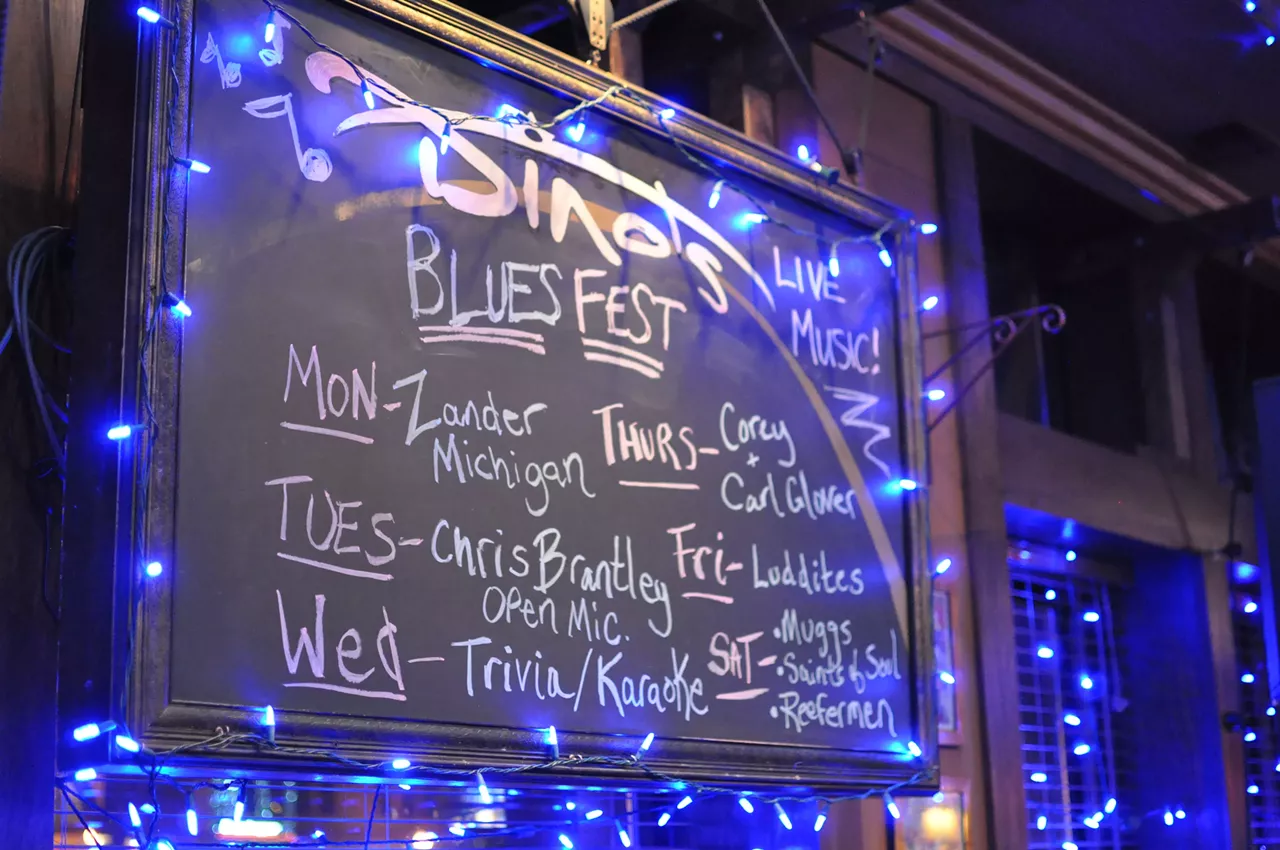 Dino's
BLUES FEST
LIVE
MUSIC!
MON-Zander
Michigan
TUES-Chris Brantley
Open Mic.
Wed-Trivia/Karaoke
THURS-Corey
+
Carl Glover
Fri-Luddites
SAT-•Muggs
•Saints of Soul
•Reefermen